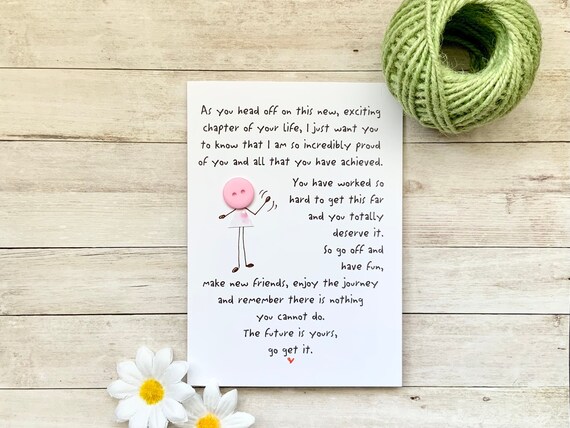 As you head off on this new, exciting
chapter of your life, I just want you
to know that I am so incredibly proud
of you and all that you have achieved.
You have worked so
hard to get this far
and you totally
deserve it.
So go off and
have fun,
make new friends, enjoy the journey
and remember there is nothing
you cannot do.
The future is yours,
go get it.